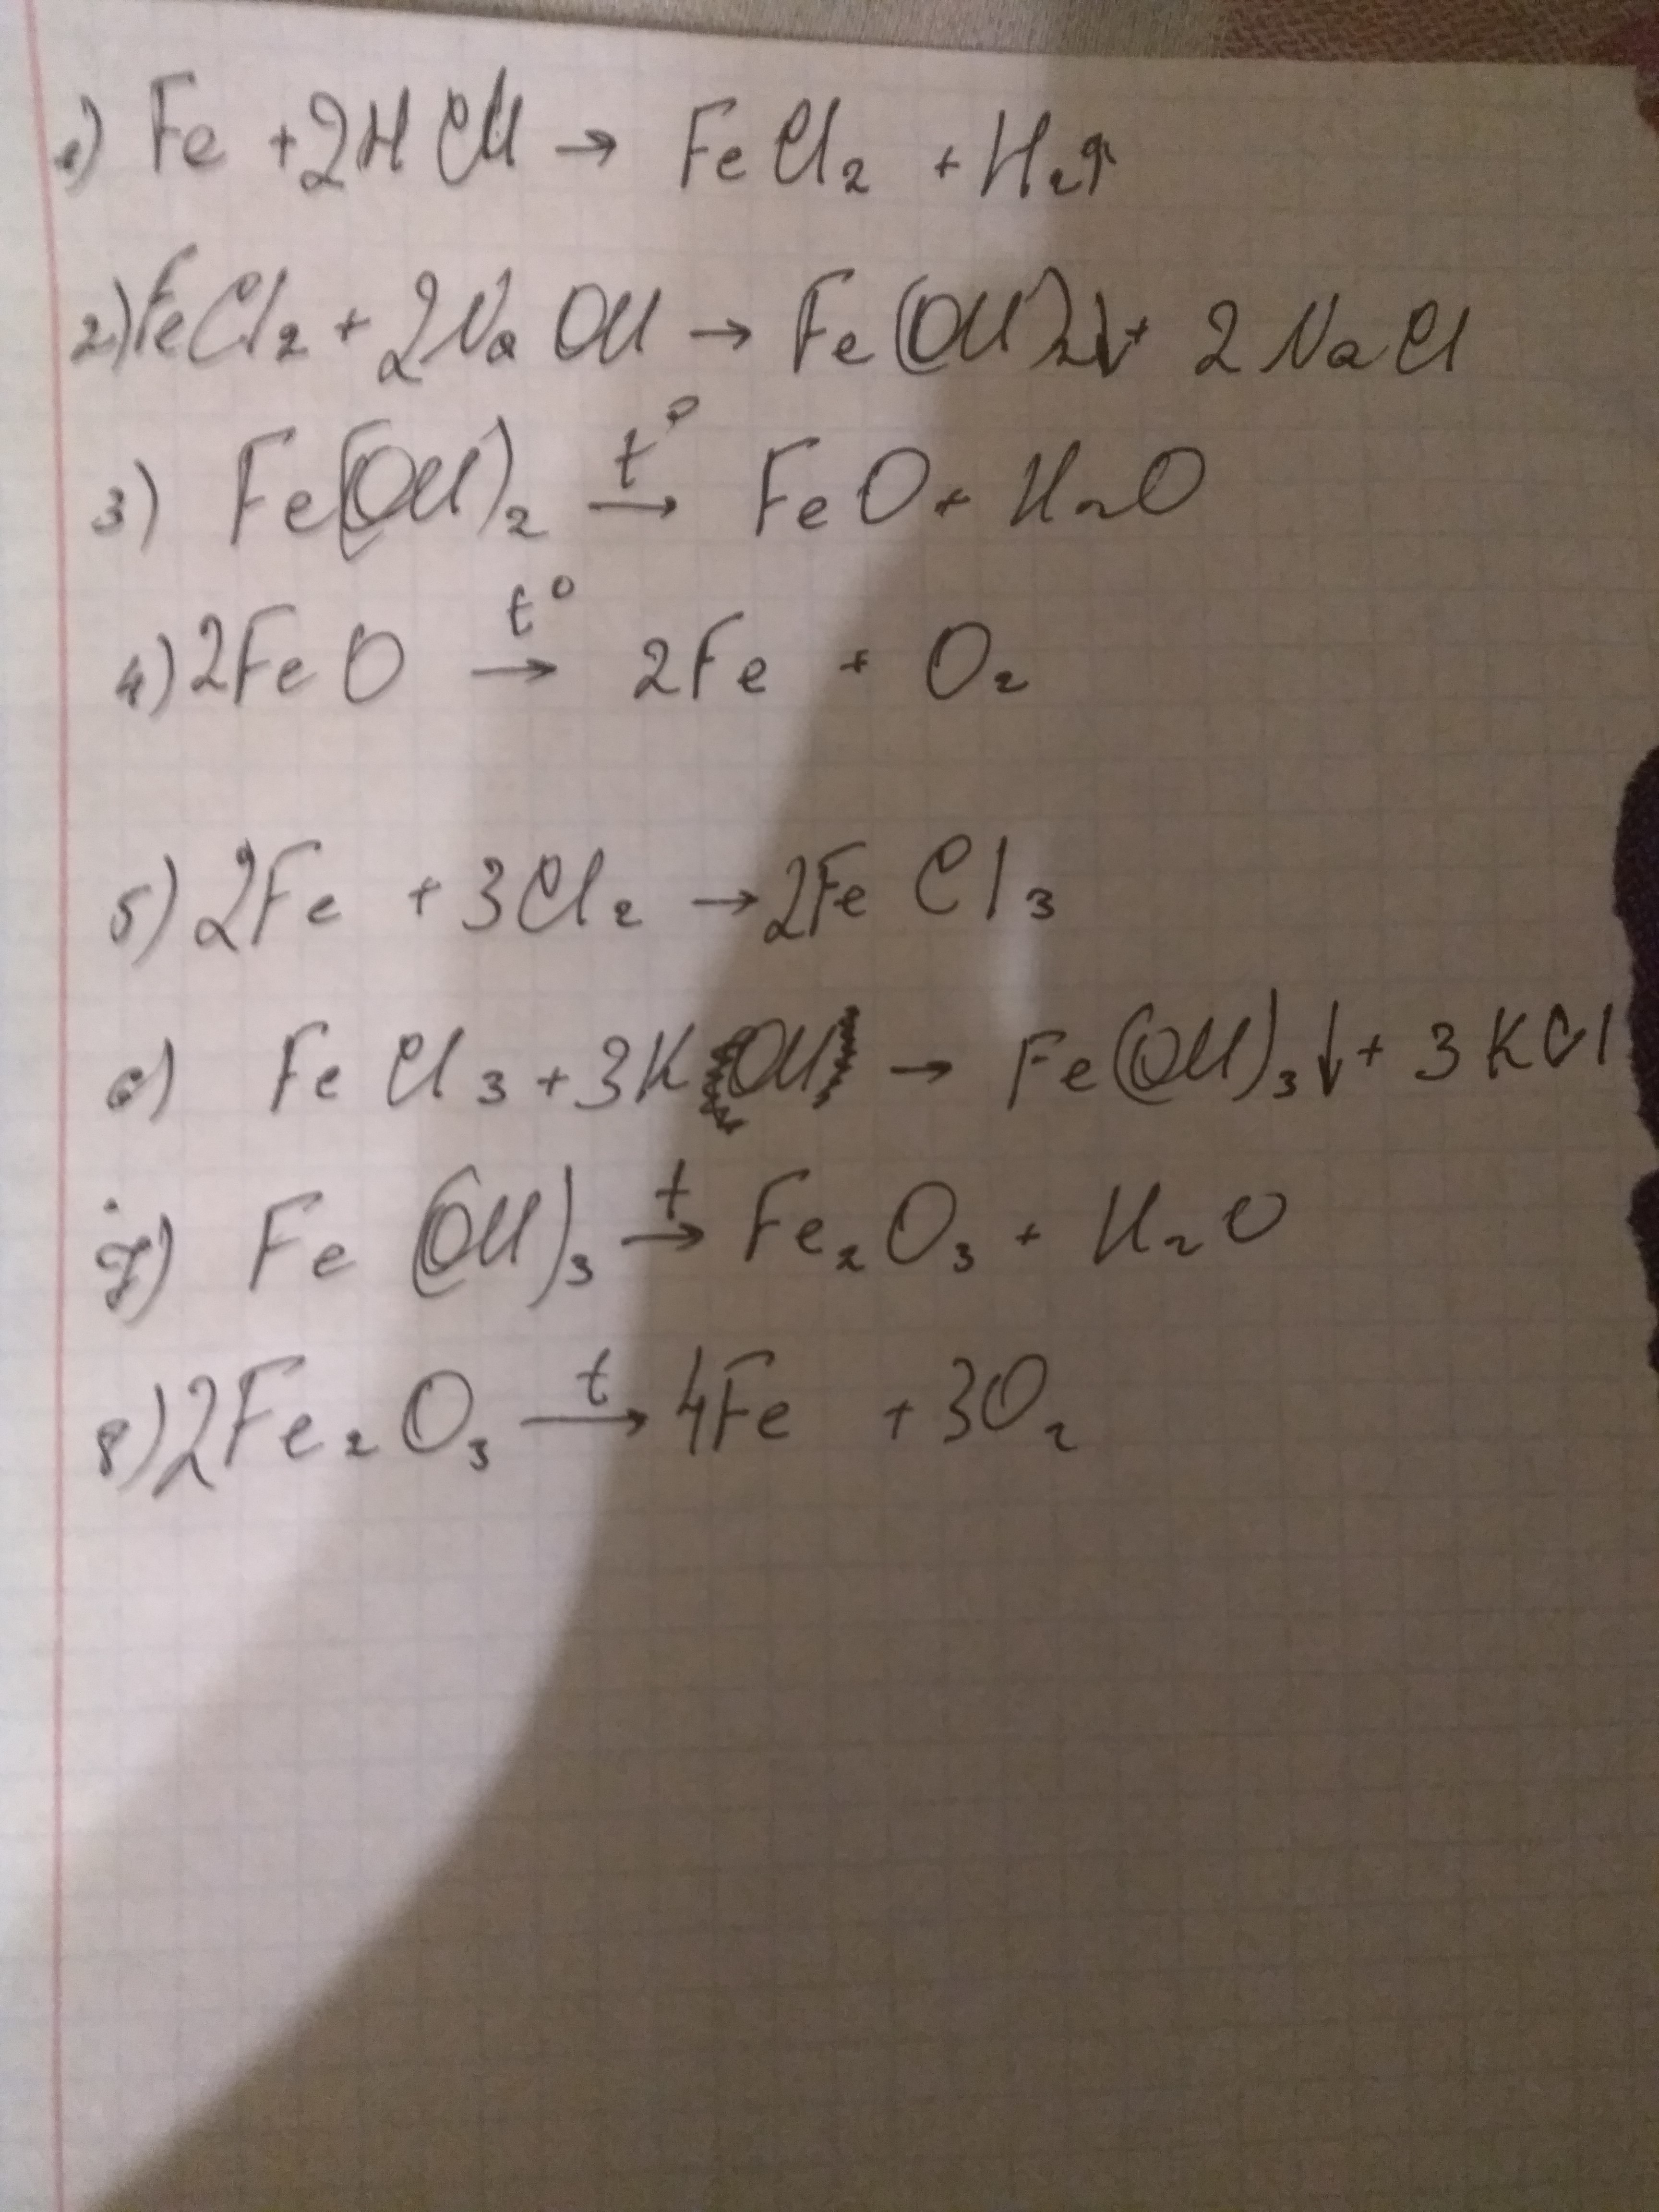 1) Fe + 2HCl → FeCl₂ + H₂↑
2) FeCl₂ + 2NaOH → Fe(OH)₂↓ + 2NaCl
3) Fe(OH)₂ t° → FeO + H₂O
4) 2FeO t° → 2Fe + O₂
5) 2Fe + 3Cl₂ → 2FeCl₃
6) FeCl₃ + 3KOH → Fe(OH)₃↓ + 3KCl
7) Fe(OH)₃ t → Fe₂O₃ + H₂O
8) 2Fe₂O₃ t → 4Fe + 3O₂